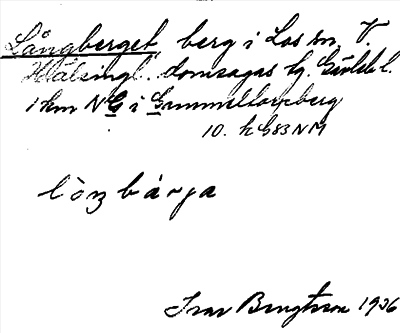 Långberget, berg i Los sn, V.
Hälsingl. domsagas tg. Gävleb l.
1 km NG i Gammeltorpberg
10. h G83 NM
lòŋbárja
Ivar Bengtsson 1936